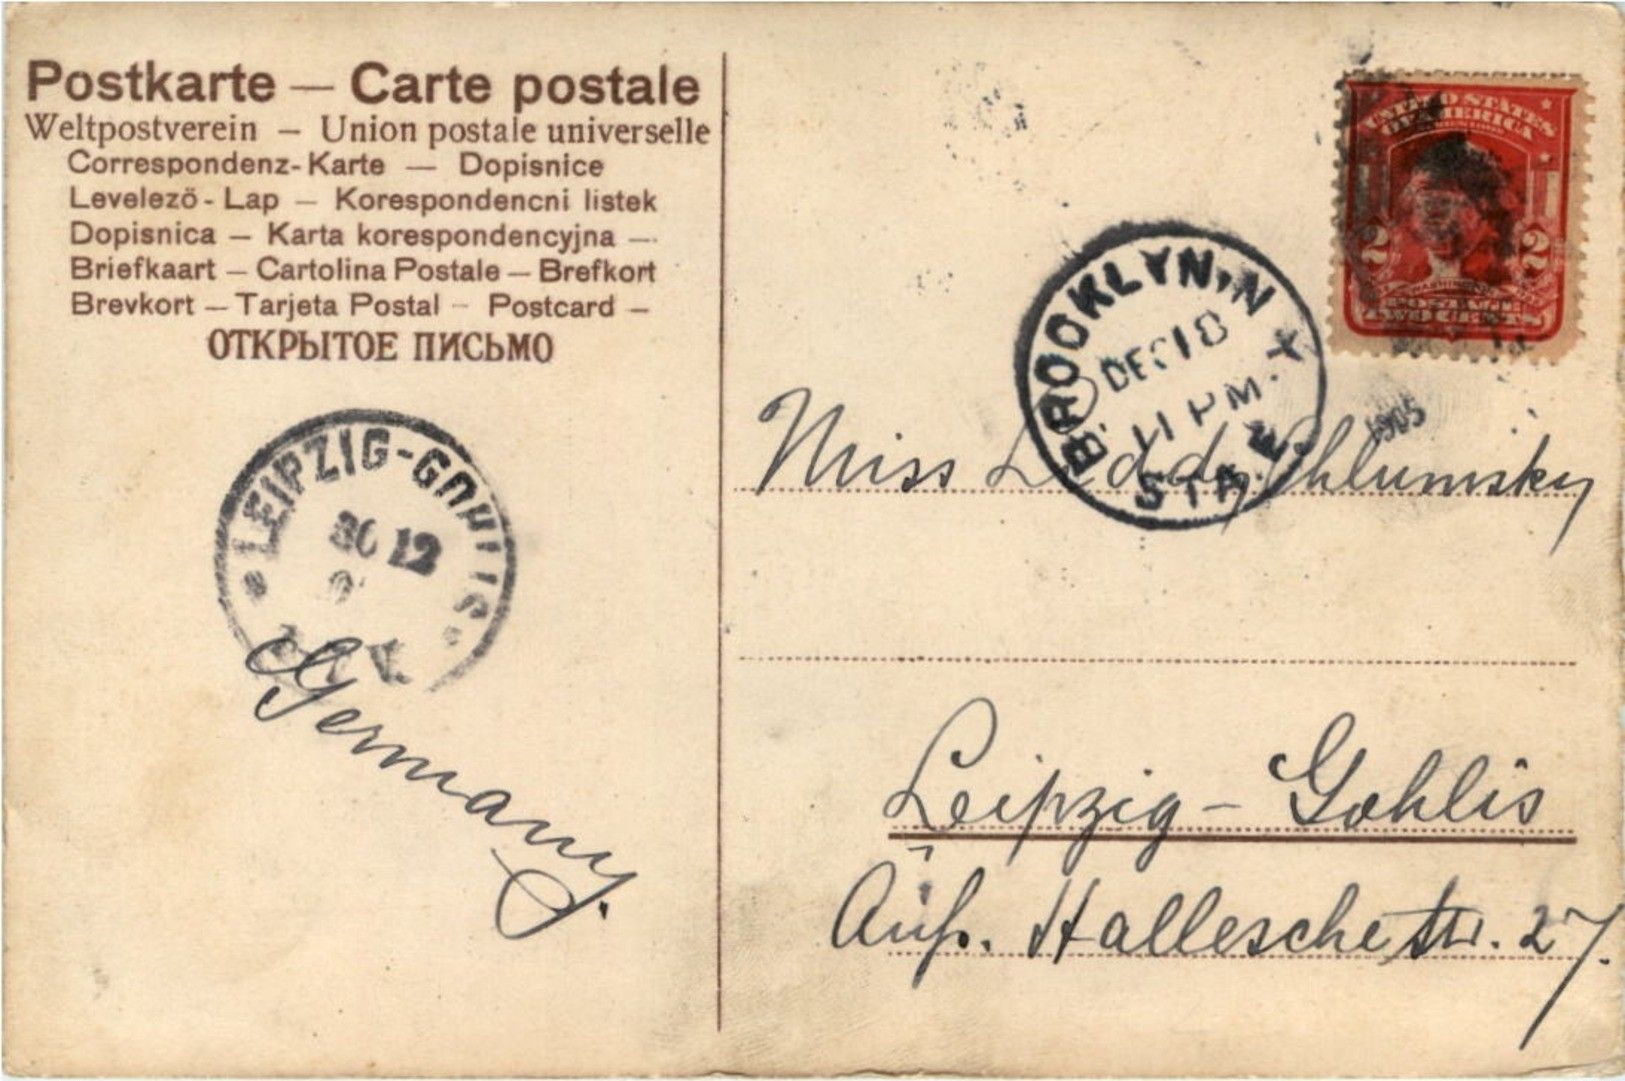 Postkarte — Carte postale
Weltpostverein – Union postale universelle
Correspondenz-Karte — Dopisnice
Levelező-Lap – Korespondencni listek
Dopisnica – Karta korespondencyjna –
Briefkaart – Cartolina Postale – Brefkort
Brevkort – Tarjeta Postal – Postcard –
ОТКРЫТОЕ ПИСЬМО
LEIPZIG-GOHLIS
12
Germany.
UNITED STATES
OF AMERICA
2 2
POSTAGE
TWO CENTS
BROOKLYN, N.Y.
DEC 18
11 PM
STA. E.
1905
Miss Chlumsky
Leipzig – Gohlis
Äuß. Hallesche Str. 27.